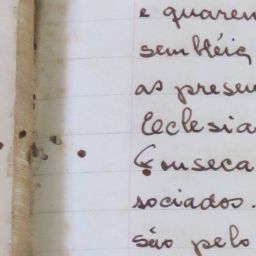 e quaren
sembléia
as presen
Ecclesia
Fonseca
sociados.
são pelo